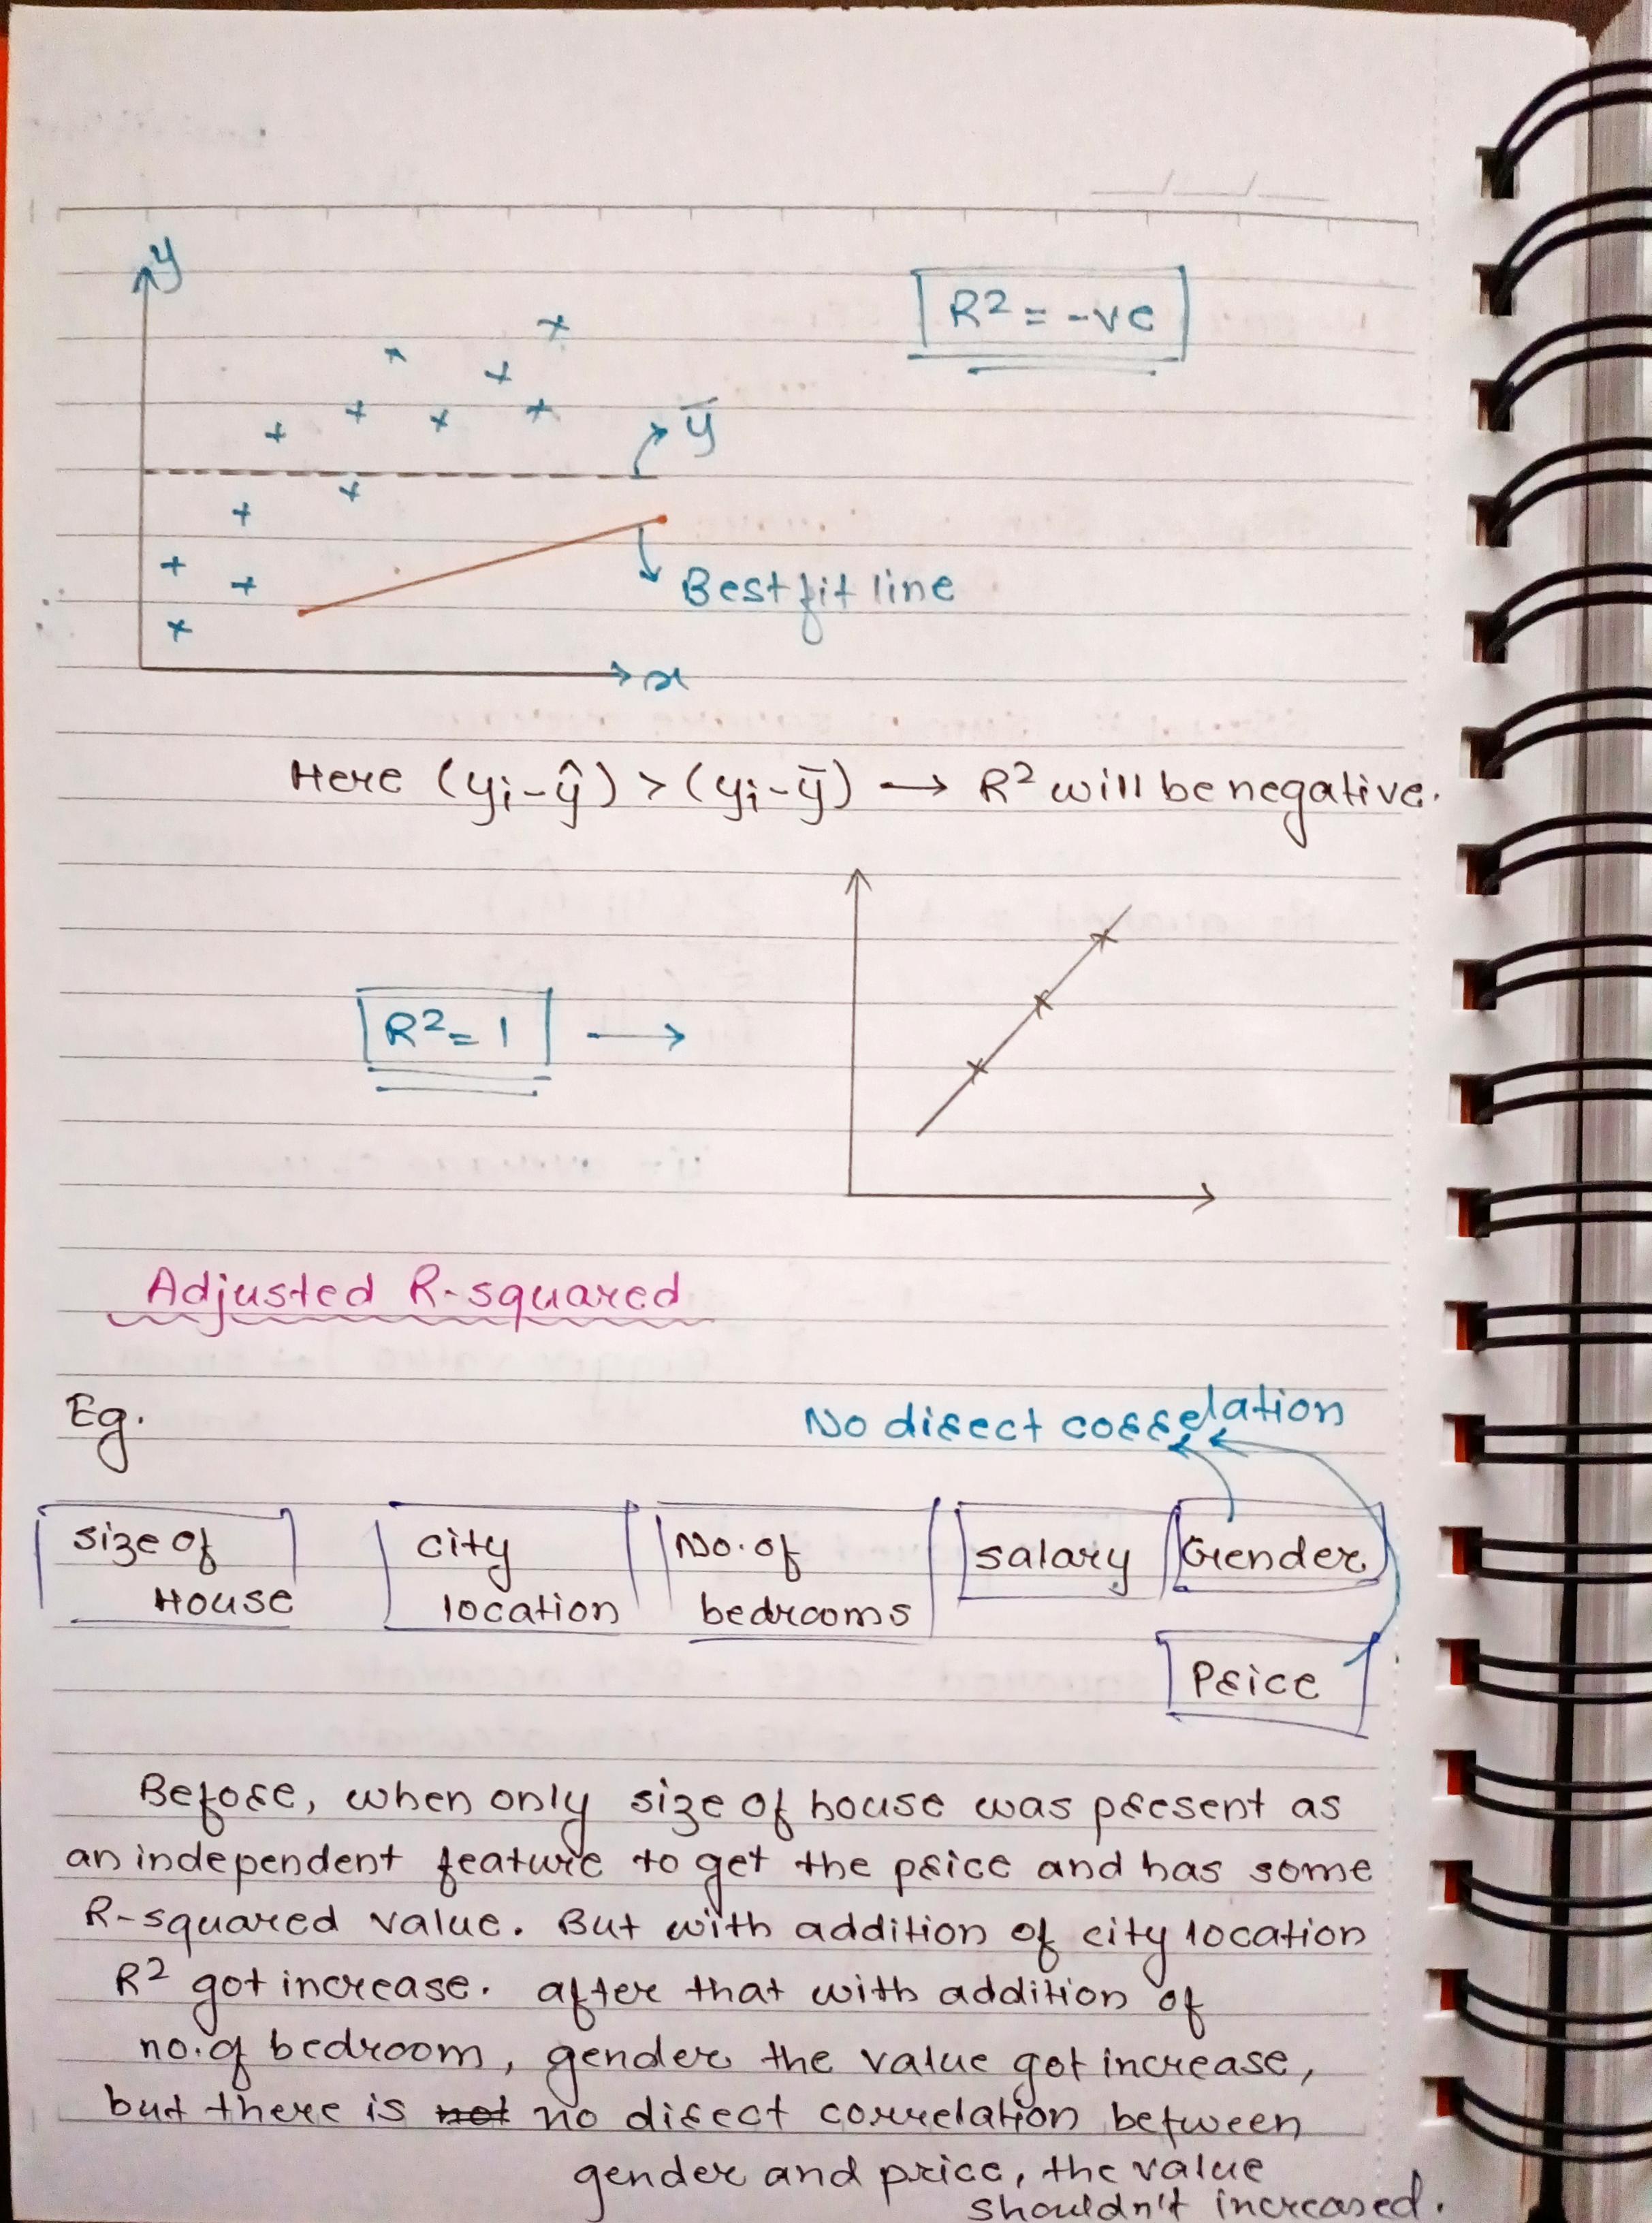 y
R² = -ve
ȳ
Best fit line
x
Here (yi - ŷ) > (yi - ȳ) → R² will be negative.
R² = 1 →
Adjusted R-squared
Eg.
No direct correlation
size of House
city location
No. of bedrooms
salary
Gender
Price
Before, when only size of house was present as
an independent feature to get the price and has some
R-squared value. But with addition of city location
R² got increase. after that with addition of
no. of bedroom, gender the value got increase,
but there is not no direct correlation between
gender and price, the value
shouldn't increased.